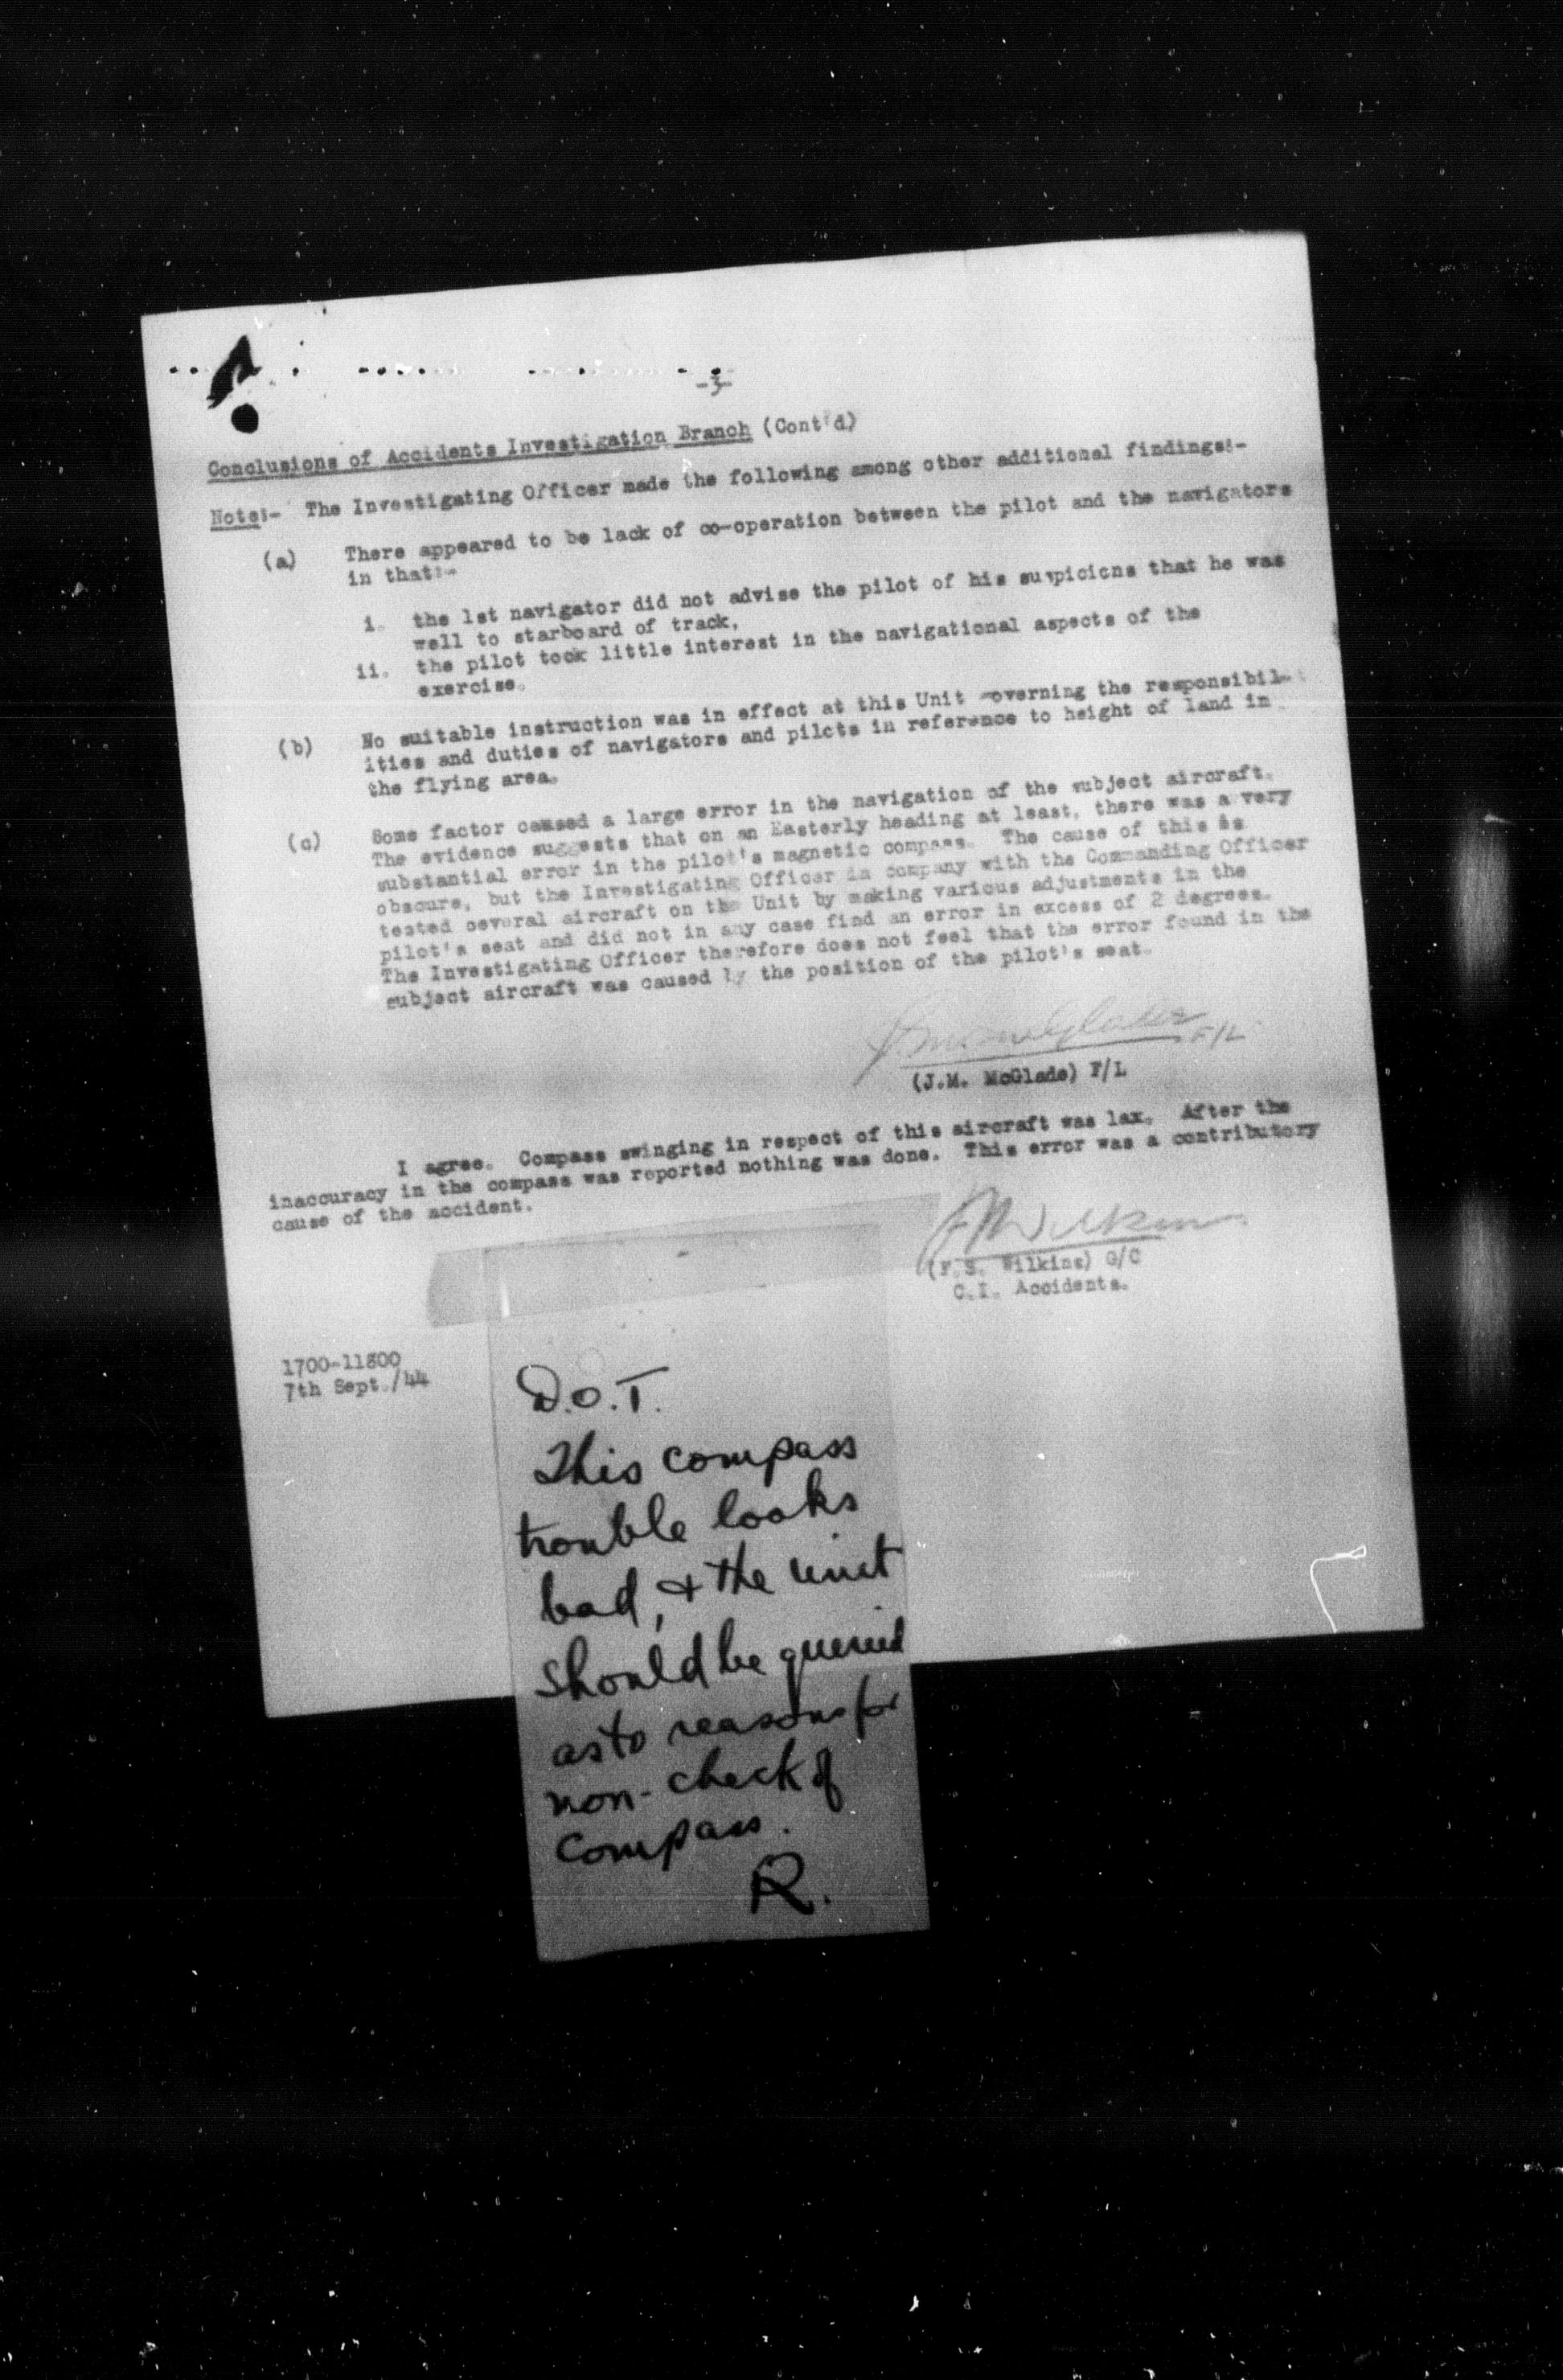 -3-
Conclusions of Accidents Investigation Branch (Cont'd)
Note:- The Investigating Officer made the following among other additional findings:-
(a) There appeared to be lack of co-operation between the pilot and the navigators
in that:-
i. the 1st navigator did not advise the pilot of his suspicions that he was
well to starboard of track,
ii. the pilot took little interest in the navigational aspects of the
exercise.
(b) No suitable instruction was in effect at this Unit governing the responsibil-
ities and duties of navigators and pilots in reference to height of land in
the flying area.
(c) Some factor caused a large error in the navigation of the subject aircraft.
The evidence suggests that on an Easterly heading at least, there was a very
substantial error in the pilot's magnetic compass. The cause of this is
obscure, but the Investigating Officer in company with the Commanding Officer
tested several aircraft on the Unit by making various adjustments in the
pilot's seat and did not in any case find an error in excess of 2 degrees.
The Investigating Officer therefore does not feel that the error found in the
subject aircraft was caused by the position of the pilot's seat.
F/L
(J.M. McGlade) F/L
I agree. Compass swinging in respect of this aircraft was lax. After the
inaccuracy in the compass was reported nothing was done. This error was a contributory
cause of the accident.
F S Wilkins
(F.S. Wilkins) G/C
C.I. Accidents.
1700-11800
7th Sept./44
D.O.T.
This compass
trouble looks
bad, & the unit
should be queried
as to reasons for
non-check of
compass.
R.